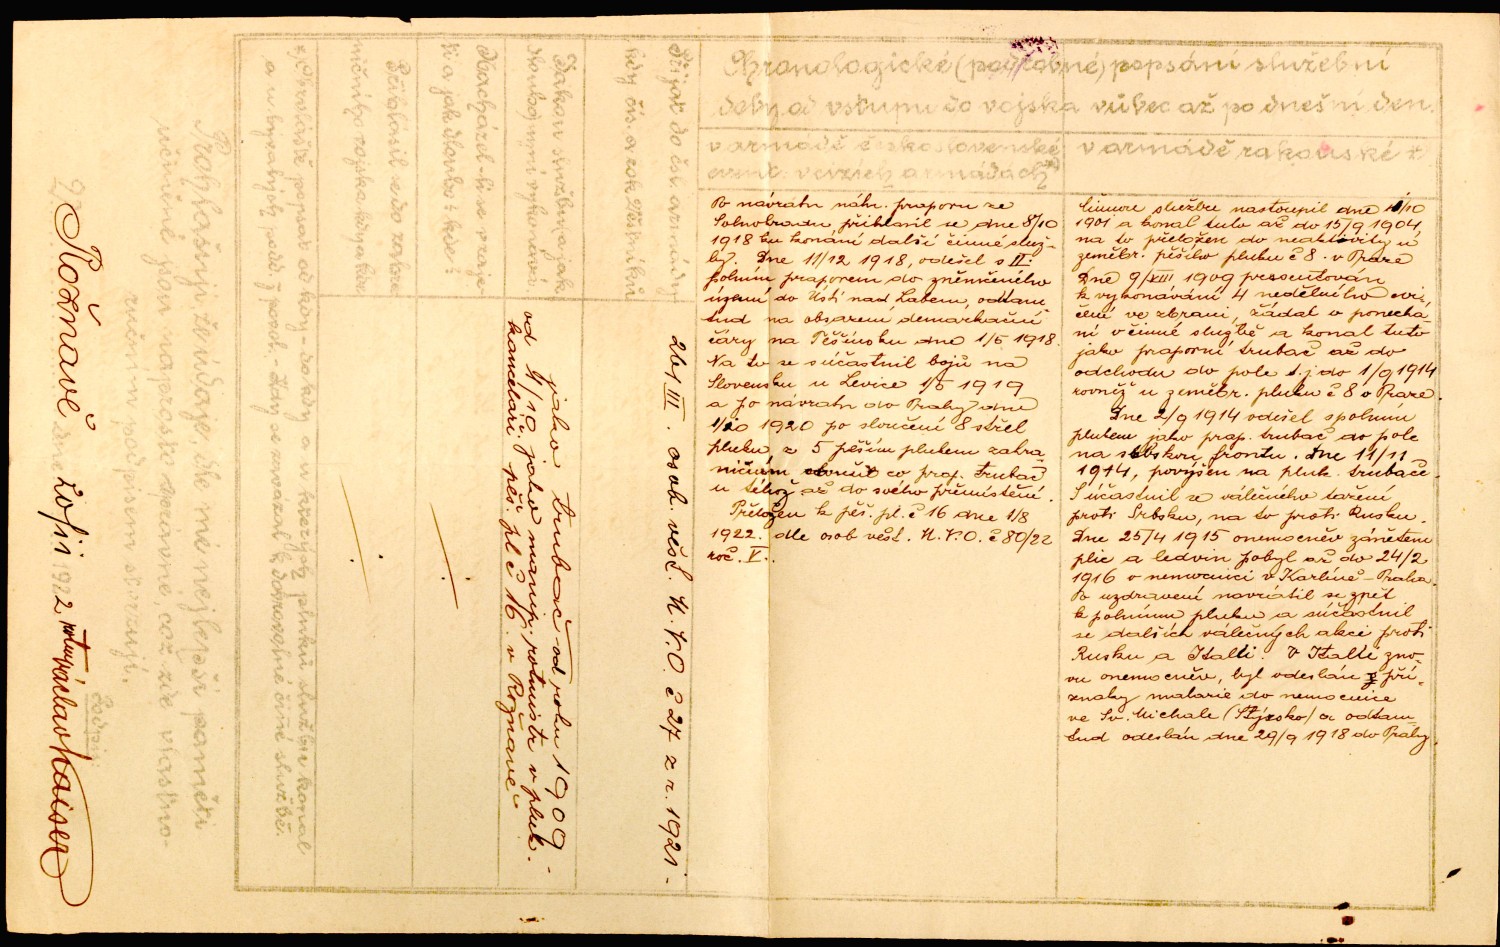 Chronologické (podrobné) popsání služební
doby od vstupu do vojska vůbec až po dnešní den.
v armádě československé
event. v cizích armádách
v armádě rakouské
Po návratu náhr. praporu ze
Solnohradu, přihlásil se dne 8/10
1918 ku konání další činné služ-
by. Dne 11/12 1918, odešel s II.
polním praporem do zněmčeného
území do Ústí nad Labem, odtam
tud na obsazení demarkační
čáry na Těšínsku dne 1/5 1918.
Na to se súčastnil bojů na
Slovensku u Levice 1/5 1919
a po návratu do Prahy dne
1/10 1920 po sloučení 8 střel
pluku, z 5 pěším plukem zahra-
ničním sloužil co prap. trubač
u téhož až do svého přemístění.
Přeložen k pěš. pl. č 16 dne 1/8
1922. dle osob věst. M.N.O. č 80/22
roč. V.
Činnou službu nastoupil dne 1/10
1901 a konal tuto až do 15/9 1904,
na to přeložen do neaktivity u
zeměbr. pěšího pluku č 8. v Praze
Dne 9/VIII 1909 presentován
k vykonávání 4 nedělního cvi,
čení ve zbrani, žádal o ponechá-
ní v činné službě a konal tuto
jako praporní trubač až do
odchodu do pole t.j. do 1/9 1914
rovněž u zeměbr. pluku č 8 v Praze.
Dne 2/9 1914 odešel s polním
plukem jako prap. trubač do pole
na srbskou frontu. Dne 11/11
1914, povýšen na pluk. trubače.
Súčastnil se válečného tažení
proti Srbsku, na to proti Rusku.
Dne 25/4 1915 onemocněv zánětem
plic a ledvin pobyl až do 24/2
1916 v nemocnici v Karlíně-Praha.
Po uzdravení navrátil se zpět
k polnímu pluku a súčastnil
se dalších válečných akcí proti
Rusku a Italii. V Italii zno-
vu onemocněv, byl odeslán z pří-
znaky malarie do nemocnice
ve Sv. Michale (Štýrsko) a odtam-
tud odeslán dne 29/9 1918 do Prahy.
Přijat do čsl. armády
kdy čís. a rok Věstníku
26/III. osob. věst. M.N.O. č 27 z r. 1921.
Jakou službu a jak
dlouho nyní vykonává?
jako trubač od roku 1909 -
od 1/10 jako manip. rotmistr v pluk.
kanceláři pěš. pl č 16. v Rožňavě
Nacházel-li se v zaje-
tí a jak dlouho: kde?
Přihlásil se do zahra
ničního vojska kdy a kde
Prohlašuji že údaje dle mé nejlepší paměti
učiněné jsou napsané správně, což zde vlastno-
ručním podpisem stvrzuji.
Podpis:
V Rožňavě dne 20/11 1922, rotm Václav Kaiser